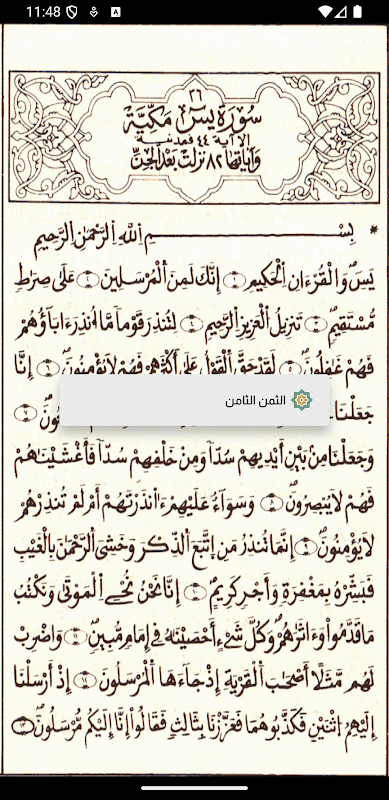 11:48
٣٦
سُورَةُ يسٓ مَكِّيَّة
إلا آية ٤٤ فمدنية
وَآياتها ٨٢ نزلت بَعْدَ الجِنّ
بِسْمِ اِ۬للَّهِ اِ۬لرَّحْمَٰنِ اِ۬لرَّحِيمِ
يَسِٓ وَالْقُرْءَانِ اِ۬لْحَكِيمِ ۝١ إِنَّكَ لَمِنَ اَ۬لْمُرْسَلِينَ ۝٢ عَلَىٰ صِرَٰطٖ
مُّسْتَقِيمٖ ۝٣ تَنزِيلُ اُ۬لْعَزِيزِ اِ۬لرَّحِيمِ ۝٤ لِتُنذِرَ قَوْماٗ مَّا أُنذِرَ ءَابَآؤُهُمْ
فَهُمْ غَٰفِلُونَ ۝٥ لَقَدْ حَقَّ اَ۬لْقَوْلُ عَلَىٰ أَكْثَرِهِمْ فَهُمْ لَا يُؤْمِنُونَ ۝٦ إِنَّا
جَعَلْنَا
الثمن الثامن
وَجَعَلْنَا مِنۢ بَيْنِ أَيْدِيهِمْ سُدّاٗ وَمِنْ خَلْفِهِمْ سُدّاٗ فَأَغْشَيْنَٰهُمْ
فَهُمْ لَا يُبْصِرُونَ ۝٨ وَسَوَآءٌ عَلَيْهِمْ ءَآنذَرْتَهُمْ أَمْ لَمْ تُنذِرْهُمْ
لَا يُؤْمِنُونَ ۝٩ إِنَّمَا تُنذِرُ مَنِ اِ۪تَّبَعَ اَ۬لذِّكْرَ وَخَشِيَ اَ۬لرَّحْمَٰنَ بِالْغَيْبِ
فَبَشِّرْهُ بِمَغْفِرَةٖ وَأَجْرٖ كَرِيمٍ ۝١٠ إِنَّا نَحْنُ نُحْيِ اِ۬لْمَوْتَىٰ وَنَكْتُبُ
مَا قَدَّمُواْ وَءَاثَٰرَهُمْ وَكُلَّ شَےْءٍ أَحْصَيْنَٰهُ فِےٓ إِمَامٖ مُّبِينٖ ۝١١ وَاضْرِبْ
لَهُم مَّثَلاً أَصْحَٰبَ اَ۬لْقَرْيَةِ إِذْ جَآءَهَا اَ۬لْمُرْسَلُونَ ۝١٢ إِذْ أَرْسَلْنَآ
إِلَيْهِمُ اُ۪ثْنَيْنِ فَكَذَّبُوهُمَا فَعَزَّزْنَا بِثَالِثٖ فَقَالُوٓاْ إِنَّآ إِلَيْكُم مُّرْسَلُونَ ۝١٣